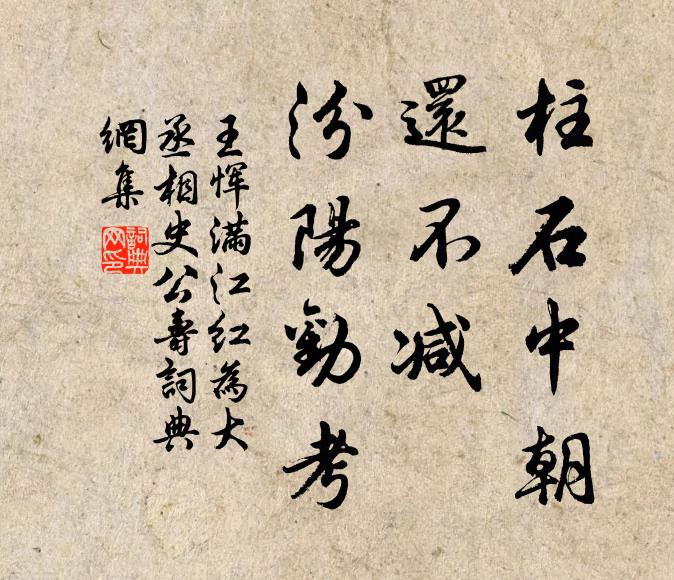 柱石中朝
還不減
汾陽勳考
王惲滿江紅為大
丞相史公壽詞典
網集
詞典
网印